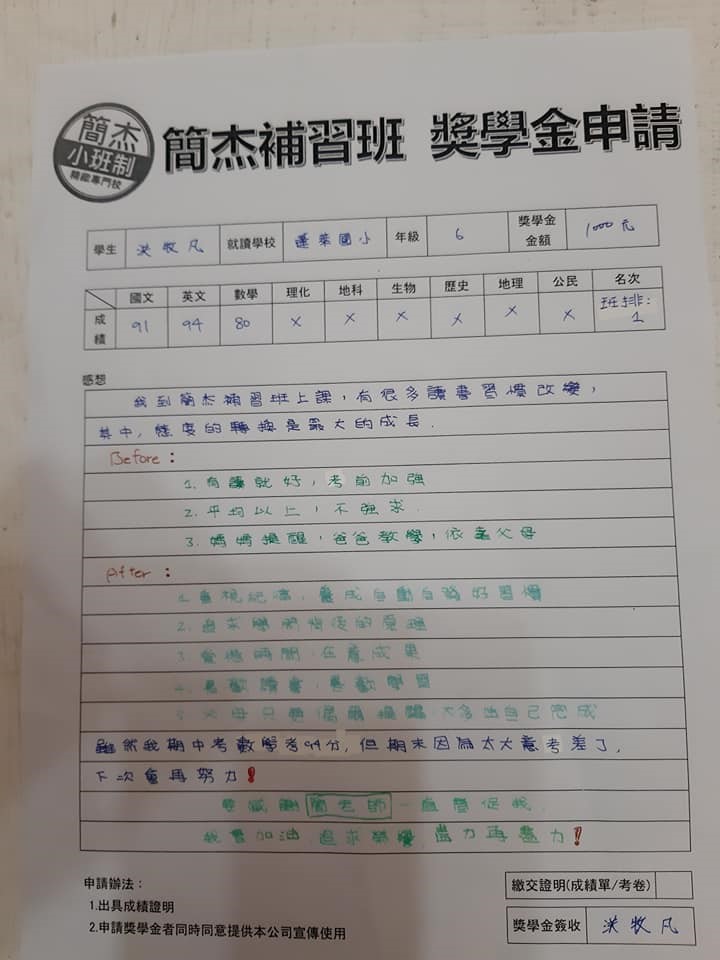 簡杰
小班制
精緻專門校
簡杰補習班 獎學金申請
學生 洪牧凡 就讀學校 蓬萊國小 年級 6 獎學金金額 1000元
國文 英文 數學 理化 地科 生物 歷史 地理 公民 名次
成績 91 94 80 X X X X X X 班排:1
感想
我到簡杰補習班上課,有很多讀書習慣改變,
其中,態度的轉換是最大的成長.
Before:
1. 有讀就好,考前加強
2. 平均以上,不強求.
3. 媽媽提醒,爸爸教學,依靠父母
After:
1. 重視紀律,養成自動自發好習慣
2. 追求學問背後的原理
3. 管理時間,在意成果
4. 喜歡讀書,喜歡學習
5. 父母只要偶爾提醒,大多由自己完成
雖然我期中考數學考94分,但期末因為太大意考差了,
下次會再努力!
要感謝簡老師一直督促我.
我會加油,追求榮譽,盡力再盡力!
申請辦法:
1.出具成績證明
2.申請獎學金者同時同意提供本公司宣傳使用
繳交證明(成績單/考卷)
獎學金簽收 洪牧凡